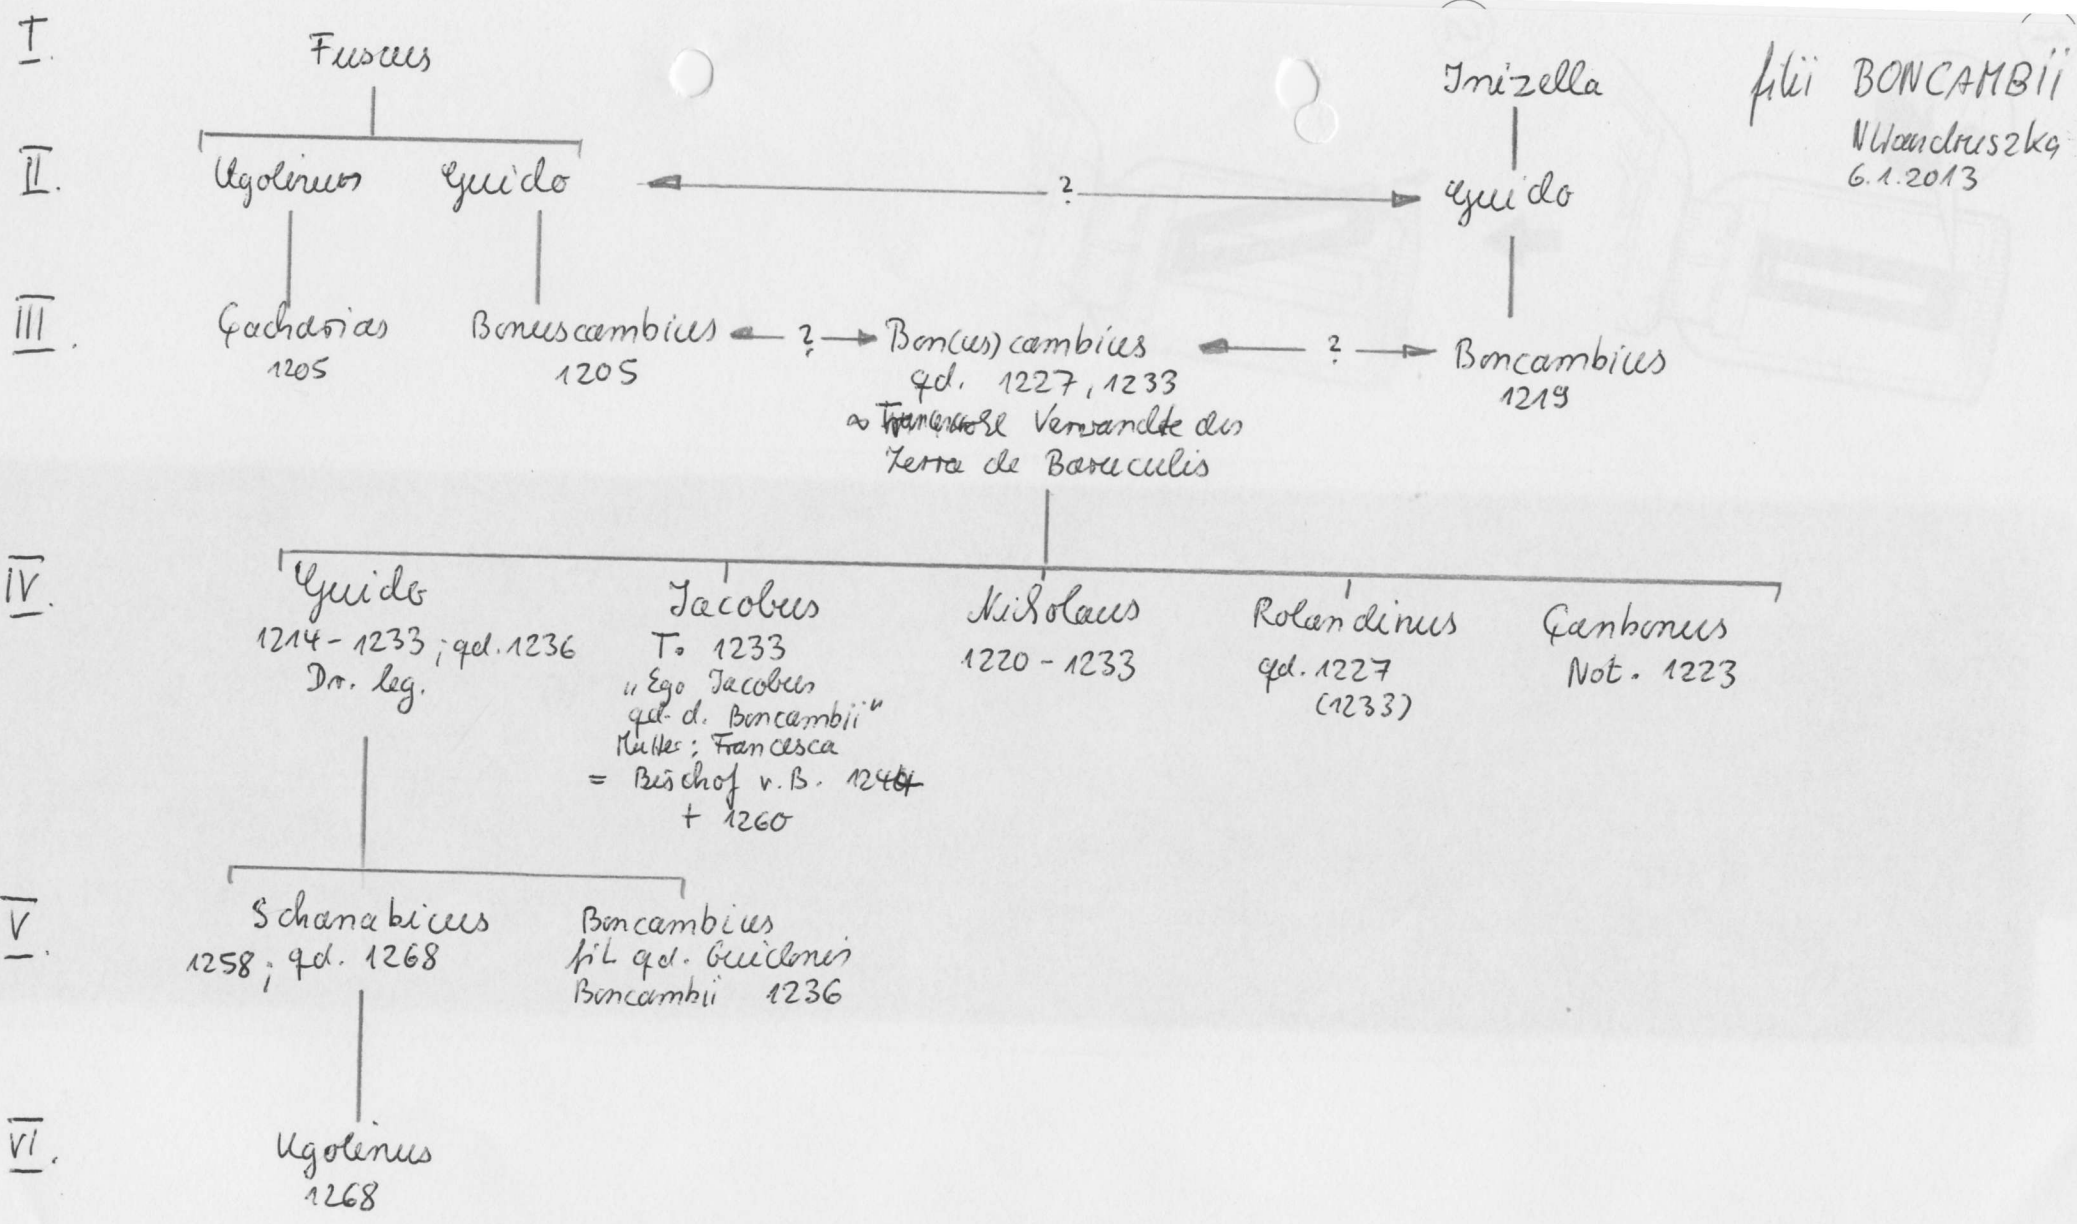 I.
Fuscus
Inizella
filii BONCAMBII
NWandruszka
6.1.2013
II.
Ugolinus Guido
?
Guido
III.
Çacharias
1205
Bonuscambius
1205
?
Bon(us)cambius
qd. 1227, 1233
∞ Verwandte des
Zerra de Baruculis
?
Boncambius
1219
IV.
Guido
1214-1233; qd. 1236
Dr. leg.
Jacobus
T. 1233
"Ego Jacobus
qd. d. Boncambii"
Mutter: Francesca
= Bischof v. B. 1244
+ 1260
Nicholaus
1220-1233
Rolandinus
qd. 1227
(1233)
Çanbonus
Not. 1223
V.
Schanabicus
1258; qd. 1268
Boncambius
fil. qd. Guidonis
Boncambii 1236
VI.
Ugolinus
1268